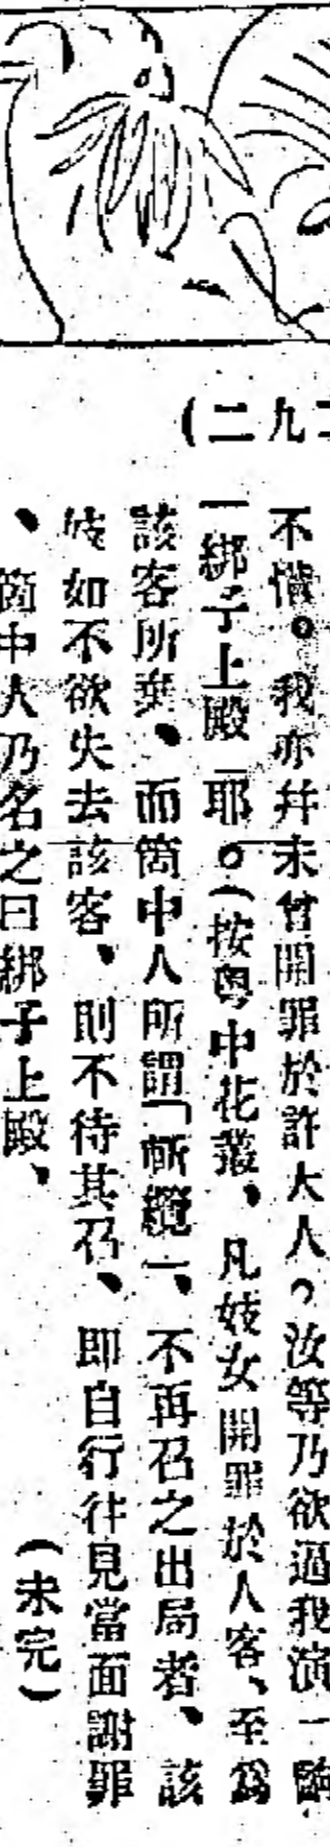 二九二(
不懂。我亦幷未曾開罪於許大人?汝等乃欲逼我演一齣
「綁子上殿」耶。(按粵中花叢、凡妓女開罪於人客、至爲
該客所棄、而箇中人所謂「斬纜」、不再召之出局者、該
妓如不欲失去該客、則不待其召、即自行往見當面謝罪
、箇中人乃名之曰綁子上殿、
(未完)